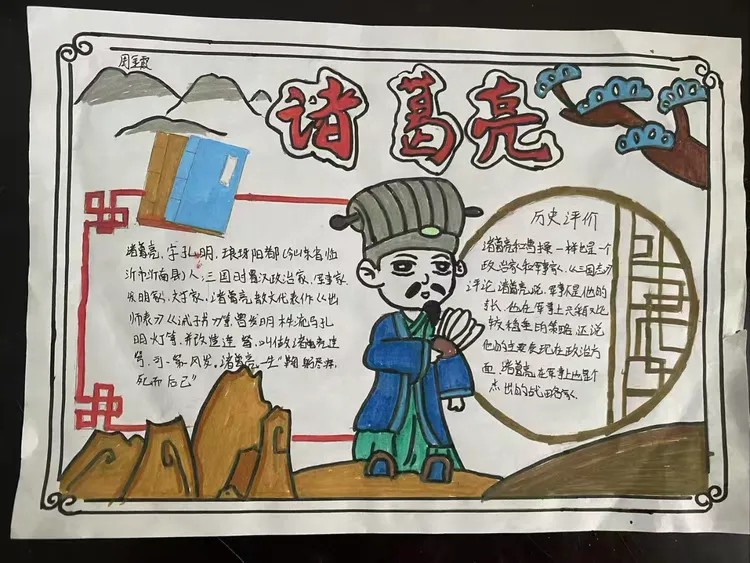 周
诸葛亮
诸葛亮,字孔明,琅琊阳都(今山东省临
沂市沂南县)人,三国时蜀汉政治家,军事家,
发明家,文学家。诸葛亮散文代表作《出
师表》《诫子书》等,曾发明木牛流马,孔
明灯等,并改造连弩,叫做诸葛连
弩,可一弩
诸葛亮一生"鞠躬尽瘁,
死而后已"
历史评价
诸葛亮和曹操一样也是一个
政治家和军事家,《三国志》
评论诸葛亮说,军事不是他的
长,他在军事上只能
较稳重的策略,还说
他的主要表现在政治方
面,诸葛亮在军事上也是个
杰出的战略家。